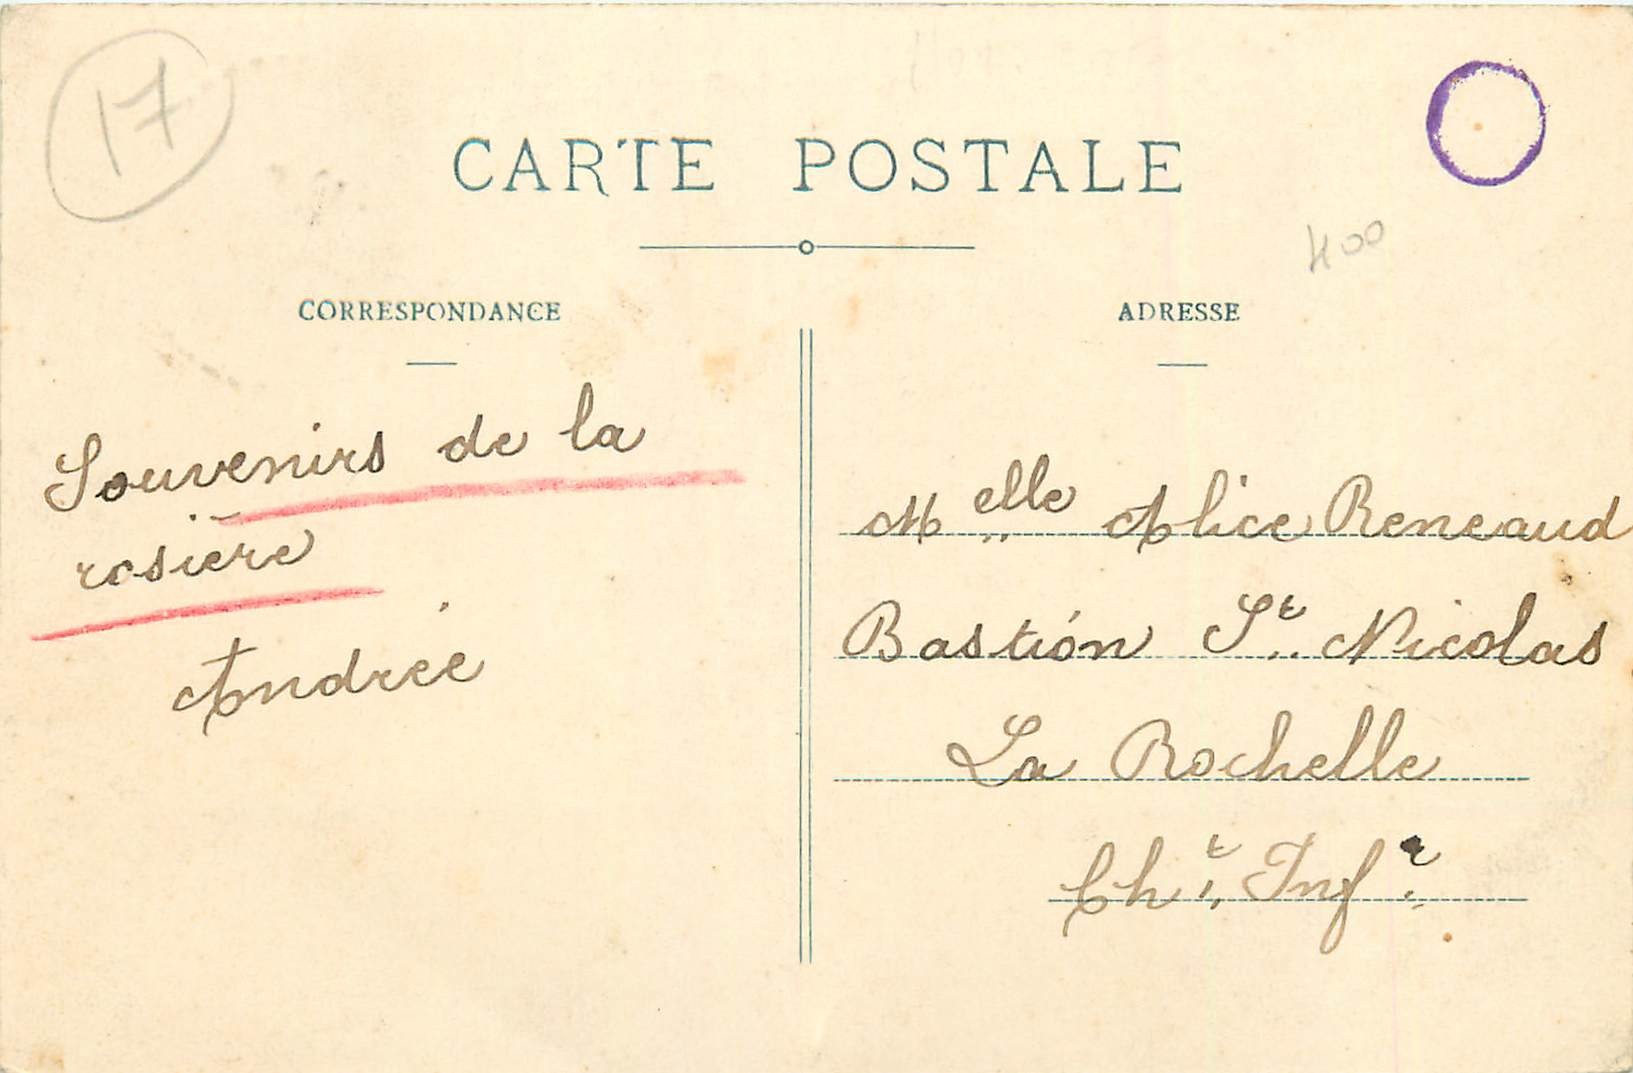 17
CARTE POSTALE
400
CORRESPONDANCE
Souvenirs de la
rosière
Andrée
ADRESSE
Melle Alice Reneaud
Bastión St. Nicolas
La Rochelle
Cht. Infre